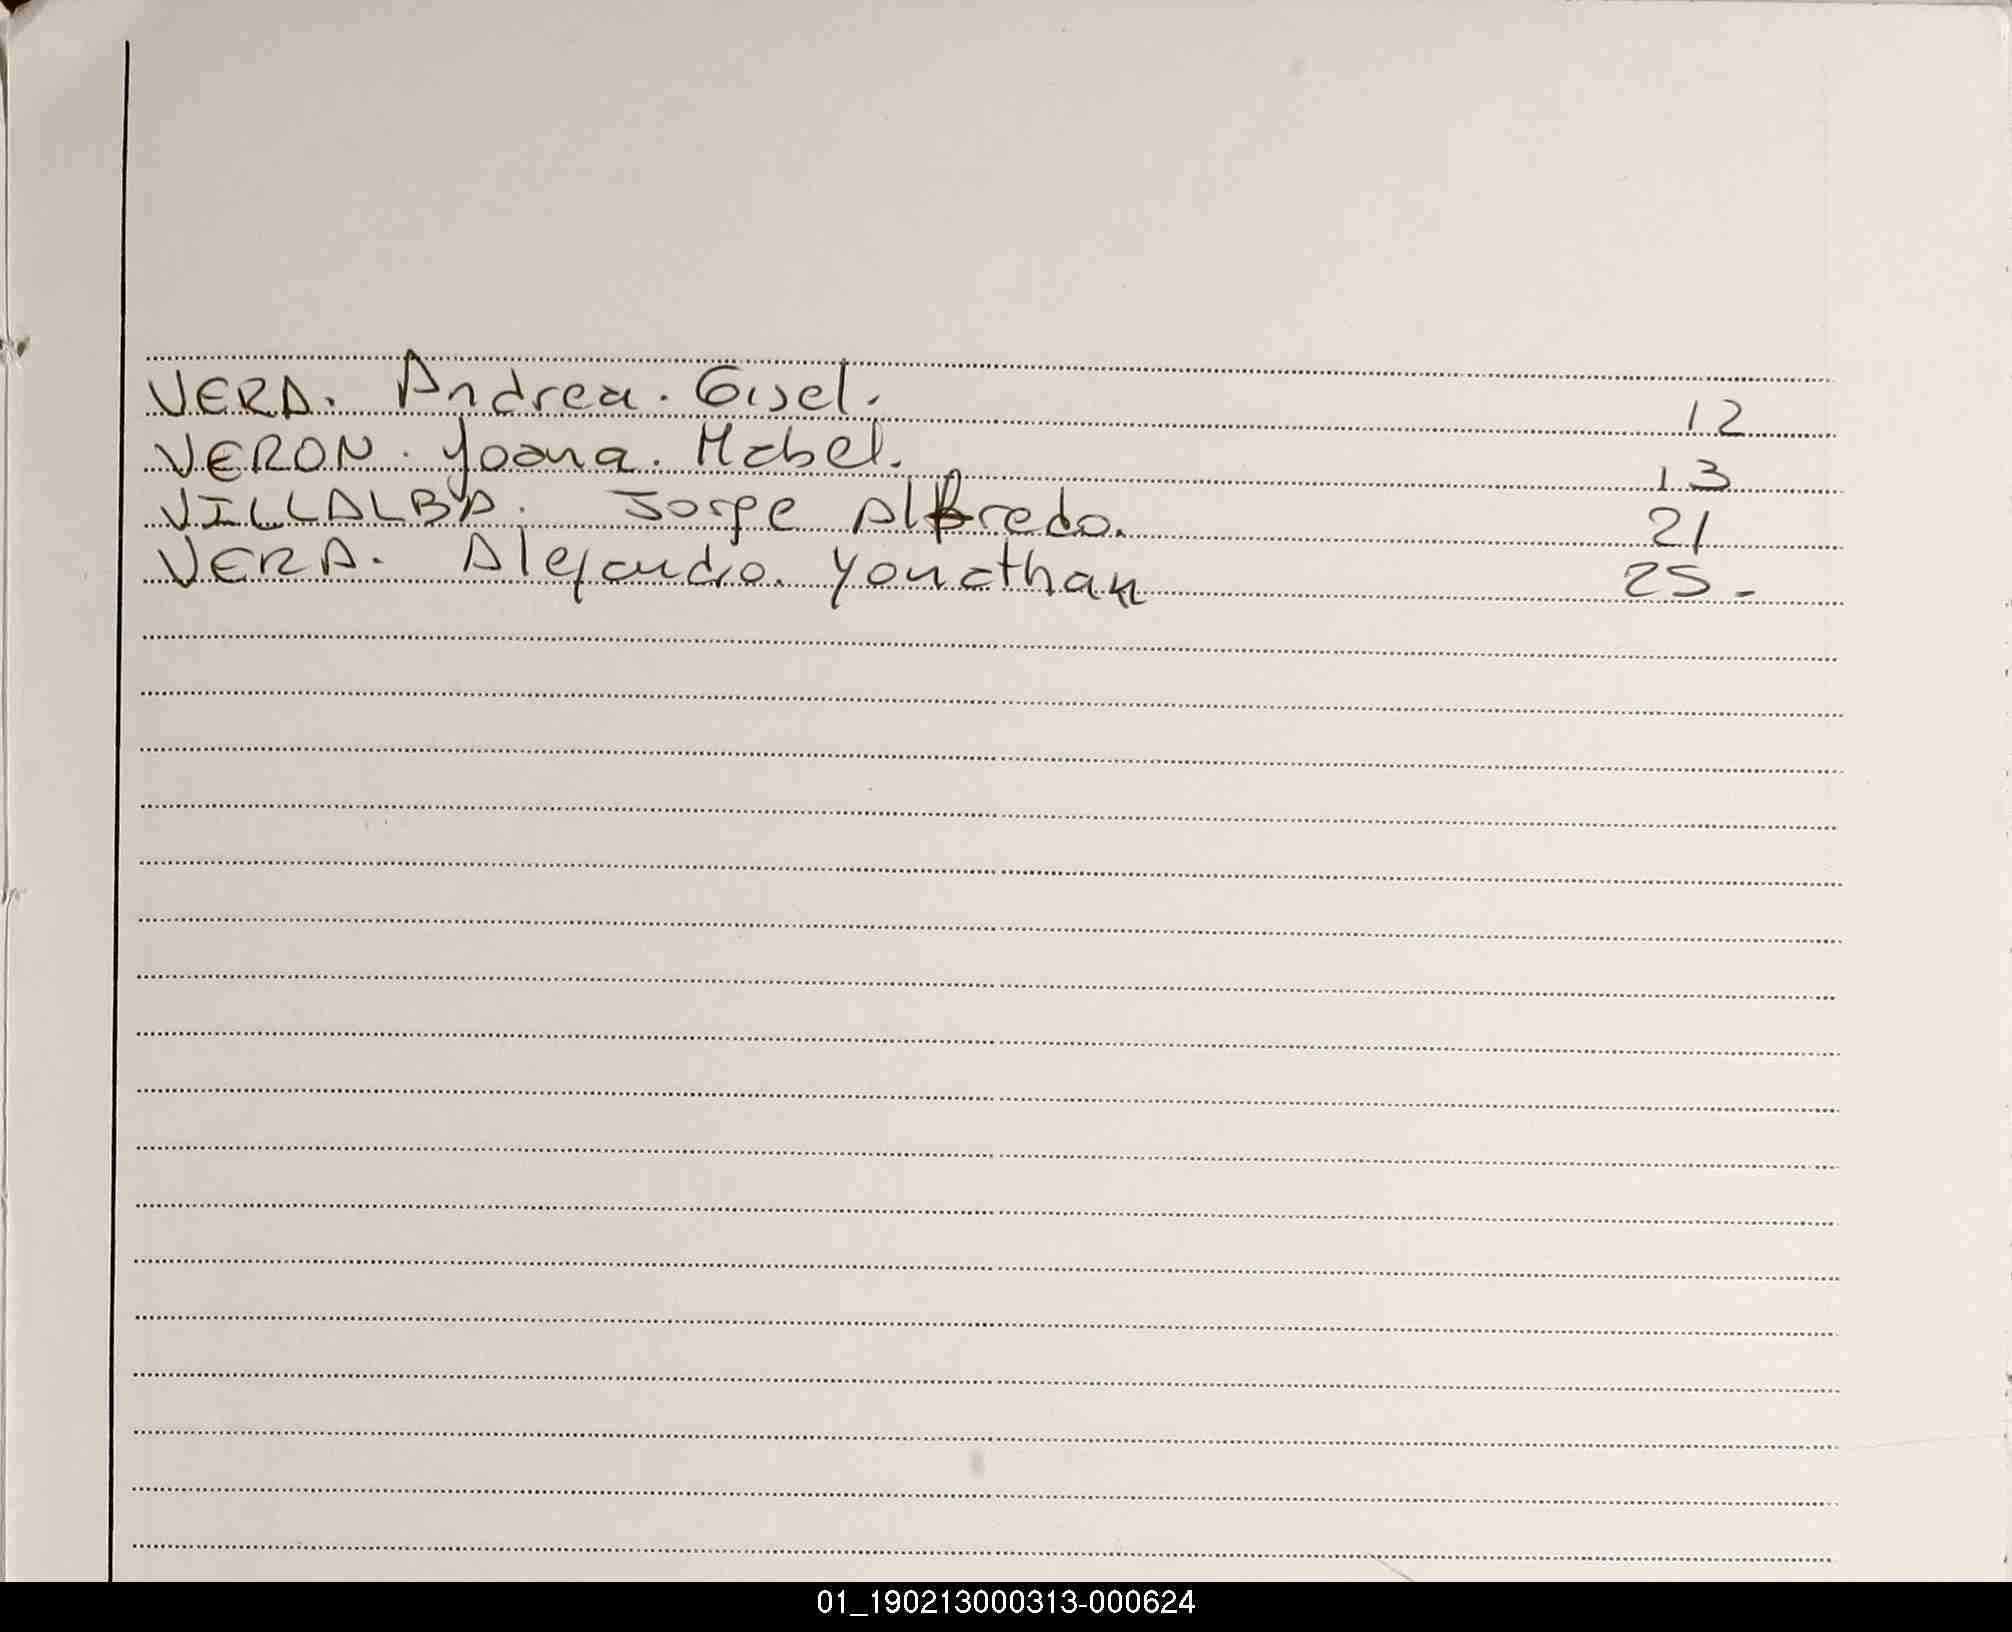 VERA. Andrea. Gisel. 12
VERON. Yoana. Mabel. 13
VILLALBA. Jorge Alfredo. 21
VERA. Alejandro. Yonathan 25-
01_190213000313-000624